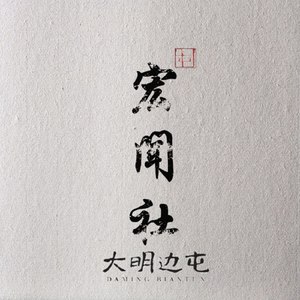 宏聞社
大明边屯
DAMING BIANTUN